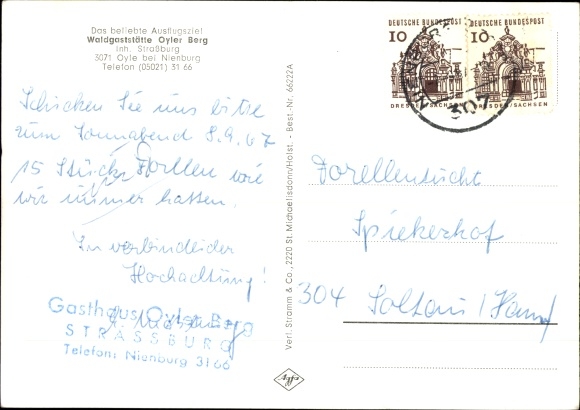 Das beliebte Ausflugsziel
Waldgaststätte Oyler Berg
Inh. Straßburg
3071 Oyle bei Nienburg
Telefon (05021) 31 66
Schicken Sie uns bitte
zum Sonnabend 8.9.67
15 Stück Forellen wie
wir immer hatten.
In verbindlicher
Hochachtung!
Gasthaus Oyler Berg
STRASSBURG
Telefon: Nienburg 3166
Verl. Stramm & Co., 2220 St. Michaelisdonn/Holst. - Best.-Nr. 66222A
Agfa
DEUTSCHE BUNDESPOST
10
DRESDEN/SACHSEN
DEUTSCHE BUNDESPOST
10
DRESDEN/SACHSEN
307
Forellenzucht
Spiekerhof
304 Soltau / Hann